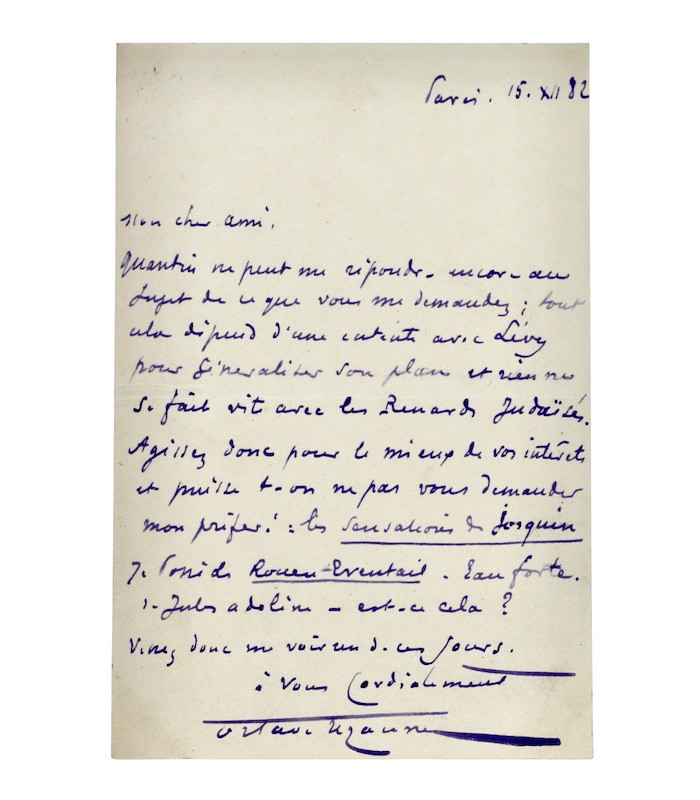 Paris. 15. XII 82
Mon cher ami,
Quantin ne peut me répondre encore au
sujet de ce que vous me demandez ; tout
cela dépend d'une entente avec Lévy
pour généraliser son plan et rien ne
se fait vite avec les Renards Judaïsés.
Agissez donc pour le mieux de vos intérêts
et puisse t-on ne pas vous demander
mon préféré : les Sensations de Josquin
Je possède Rouen-Eventail. Eau forte.
de Jules adeline – est-ce cela ?
Venez donc me voir un de ces jours.
à vous Cordialement
Octave Uzanne